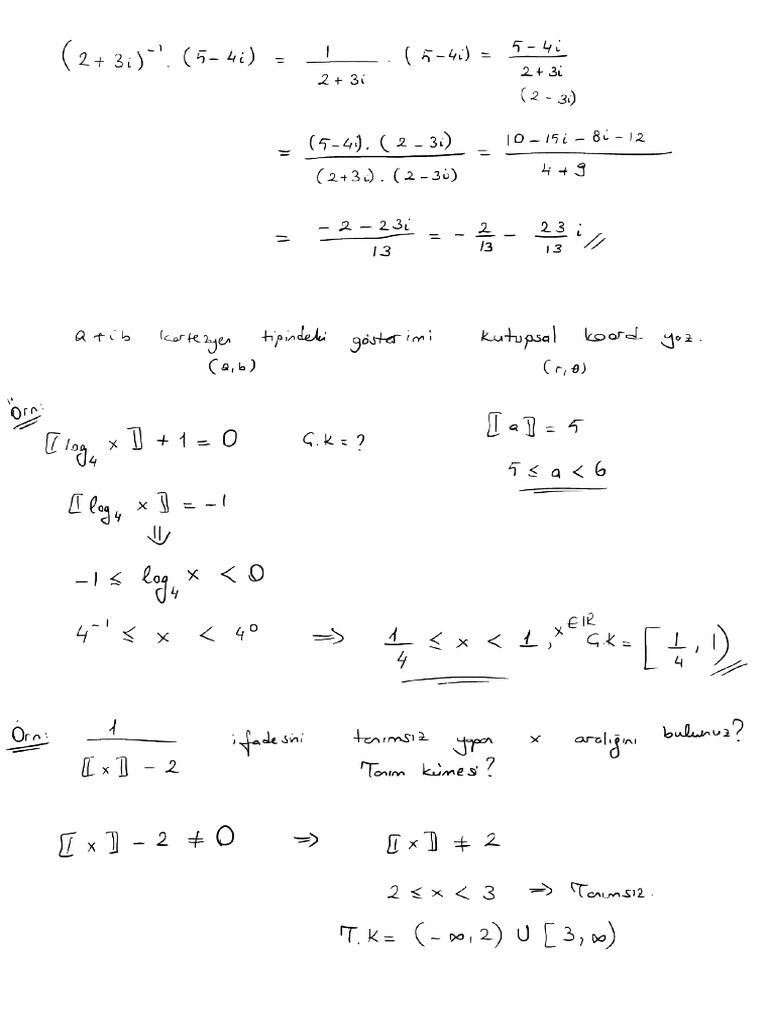 (2+3i)⁻¹ . (5-4i) = 1/(2+3i) . (5-4i) = (5-4i)/(2+3i)
(2-3i)
= (5-4i).(2-3i)/(2+3i).(2-3i) = (10-15i-8i-12)/(4+9)
= (-2-23i)/13 = -2/13 - 23/13 i //
a+ib kartezyen tipindeki gösterimi kutupsal koord yaz.
(a,b) (r,θ)
Örn:
⟦log₄ x⟧ + 1 = 0 G.K = ? ⟦a⟧ = 5
5 ≤ a < 6
⟦log₄ x⟧ = -1
⇓
-1 ≤ log₄ x < 0
4⁻¹ ≤ x < 4⁰ ⇒ 1/4 ≤ x < 1, x ∈ IR G.K = [1/4, 1) //
Örn: 1/(⟦x⟧ - 2) ifadesini tanımsız yapan x aralığını bulunuz?
Tanım kümesi?
⟦x⟧ - 2 ≠ 0 ⇒ ⟦x⟧ ≠ 2
2 ≤ x < 3 ⇒ Tanımsız.
T.K = (-∞,2) ∪ [3,∞)